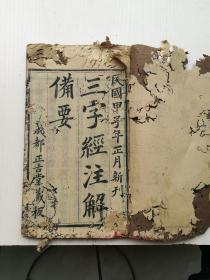 民國甲子年正月新刊
三字經注解
備要
成都正古堂藏板